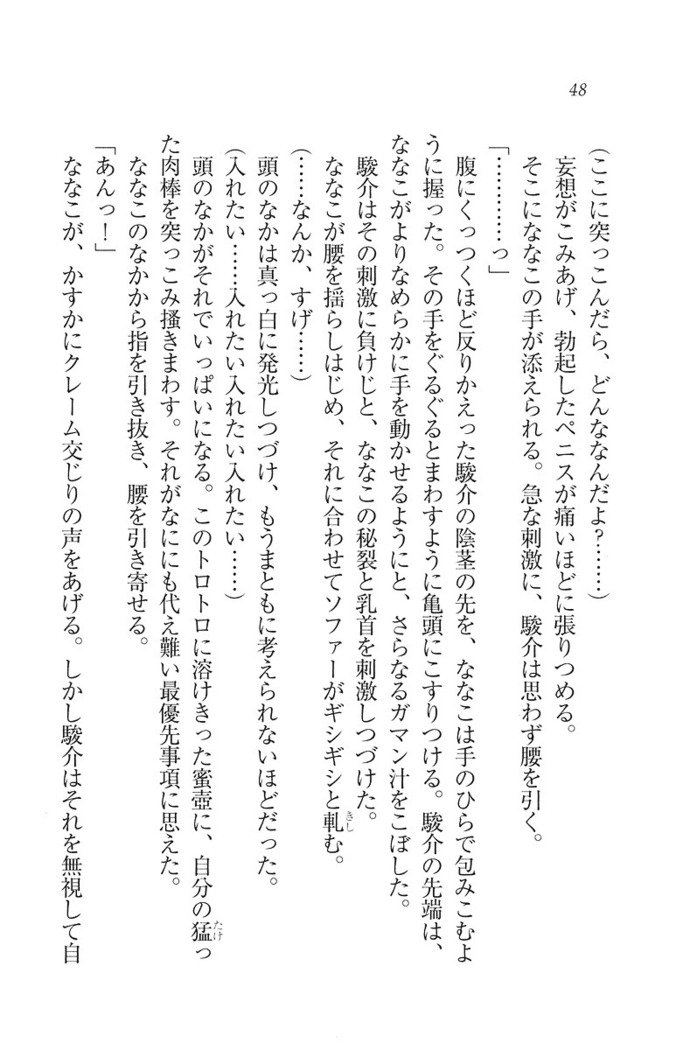 48
(ここに突っこんだら、どんななんだよ?……)
妄想がこみあげ、勃起したペニスが痛いほどに張りつめる。
そこにななこの手が添えられる。急な刺激に、駿介は思わず腰を引く。
「…………っ」
腹にくっつくほど反りかえった駿介の陰茎の先を、ななこは手のひらで包みこむよ
うに握った。その手をぐるぐるとまわすように亀頭にこすりつける。駿介の先端は、
ななこがよりなめらかに手を動かせるようにと、さらなるガマン汁をこぼした。
駿介はその刺激に負けじと、ななこの秘裂と乳首を刺激しつづけた。
ななこが腰を揺らしはじめ、それに合わせてソファーがギシギシと軋きしむ。
(……なんか、すげ……)
頭のなかは真っ白に発光しつづけ、もうまともに考えられないほどだった。
(入れたい……入れたい入れたい入れたい……)
頭のなかがそれでいっぱいになる。このトロトロに溶けきった蜜壺に、自分の猛たけっ
た肉棒を突っこみ掻きまわす。それがなににも代え難い最優先事項に思えた。
ななこのなかから指を引き抜き、腰を引き寄せる。
「あんっ!」
ななこが、かすかにクレーム交じりの声をあげる。しかし駿介はそれを無視して自